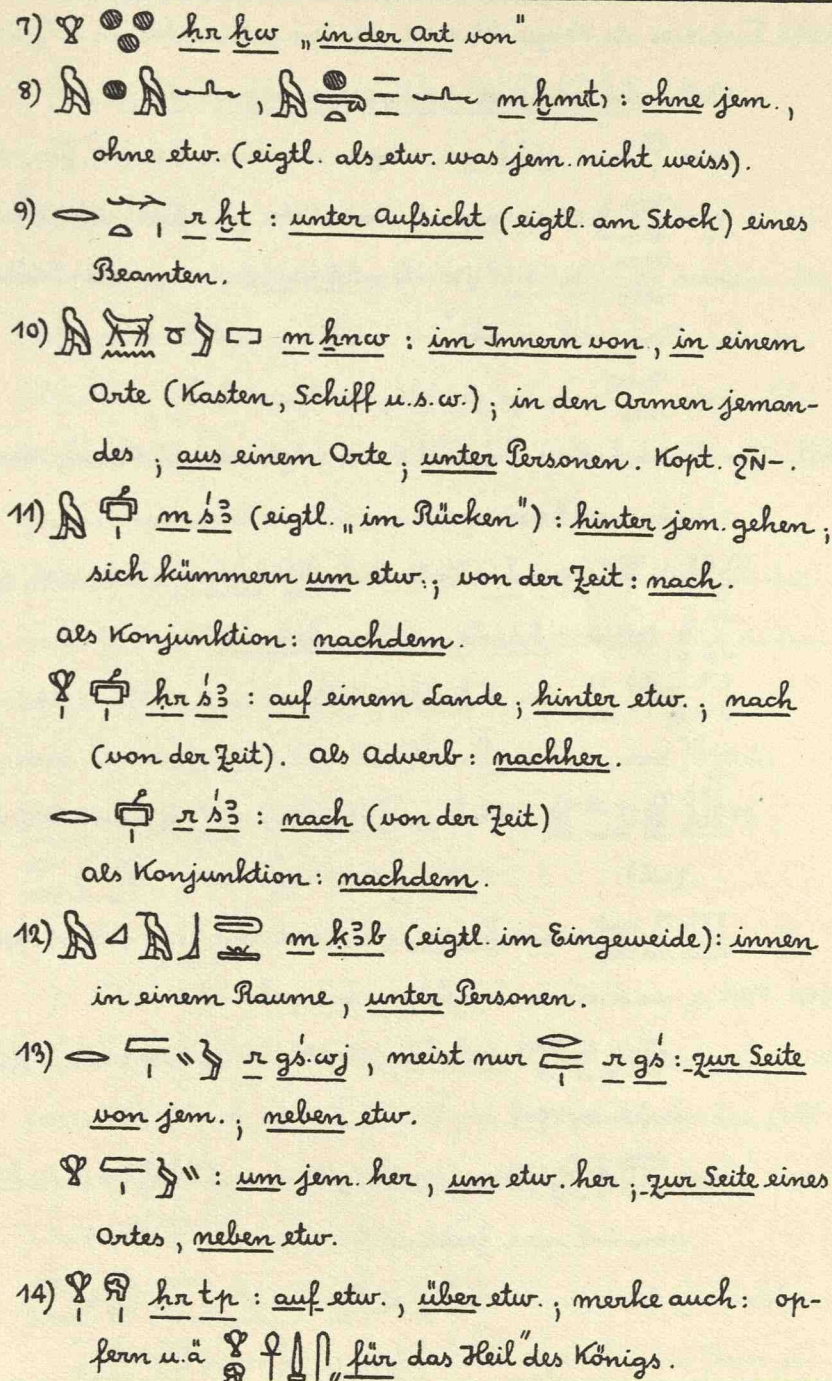 7) 𓁷 𓐍𓐍𓐍 ḥr ḫw „in der Art von"
8) 𓅓𓐍𓅓𓂜, m ḫmt: ohne jem.,
ohne etw. (eigtl. als etw. was jem. nicht weiss).
9) 𓂋 𓆱𓏏𓏤 r ḫt : unter Aufsicht (eigtl. am Stock) eines
Beamten.
10) 𓅓 𓏌𓅱𓉐 m ẖnw : im Innern von, in einem
Orte (Kasten, Schiff u.s.w.); in den Armen jeman-
des; aus einem Orte; unter Personen. Kopt. ϩⲛ̄-.
11) 𓅓 m śꜣ (eigtl. „im Rücken"): hinter jem. gehen;
sich kümmern um etw.; von der Zeit: nach.
als Konjunktion: nachdem.
𓁷𓏤 ḥr śꜣ : auf einem Lande; hinter etw.; nach
(von der Zeit). Als Adverb: nachher.
𓂋 r śꜣ : nach (von der Zeit)
als Konjunktion: nachdem.
12) 𓅓𓈎𓄿𓃀 m ḳꜣb (eigtl. im Eingeweide): innen
in einem Raume, unter Personen.
13) 𓂋 𓐛𓏤𓏭𓅱 r gś.wj, meist nur 𓂋𓐛𓏤 r gś: zur Seite
von jem.; neben etw.
𓁷 𓐛𓏤𓅱𓏭 : um jem. her, um etw. her; zur Seite eines
Ortes, neben etw.
14) 𓁷𓏤𓁶𓏤 ḥr tp : auf etw., über etw.; merke auch: op-
fern u.ä 𓁷𓁶 𓋹𓍑𓋴 „für das Heil" des Königs.